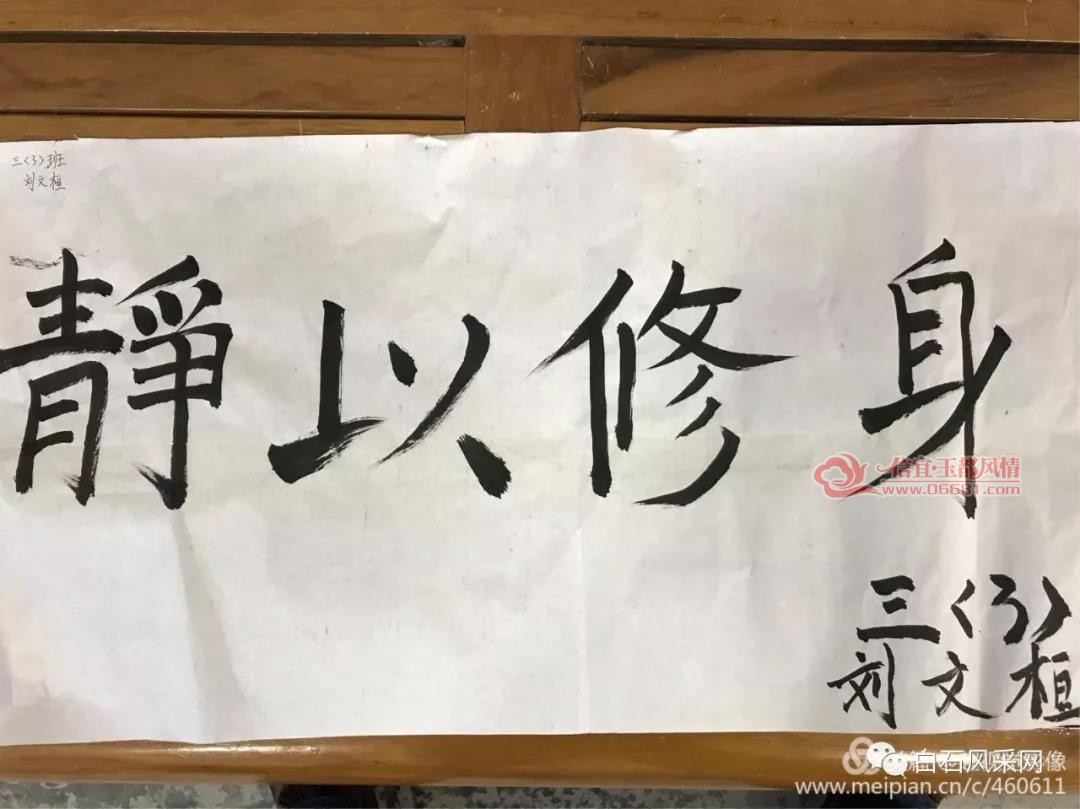 三(3)班
刘文桓
靜以修身
信宜·玉都风情
www.06681.com
三(3)
刘文桓
白石风采网
www.meipian.cn/c/460611